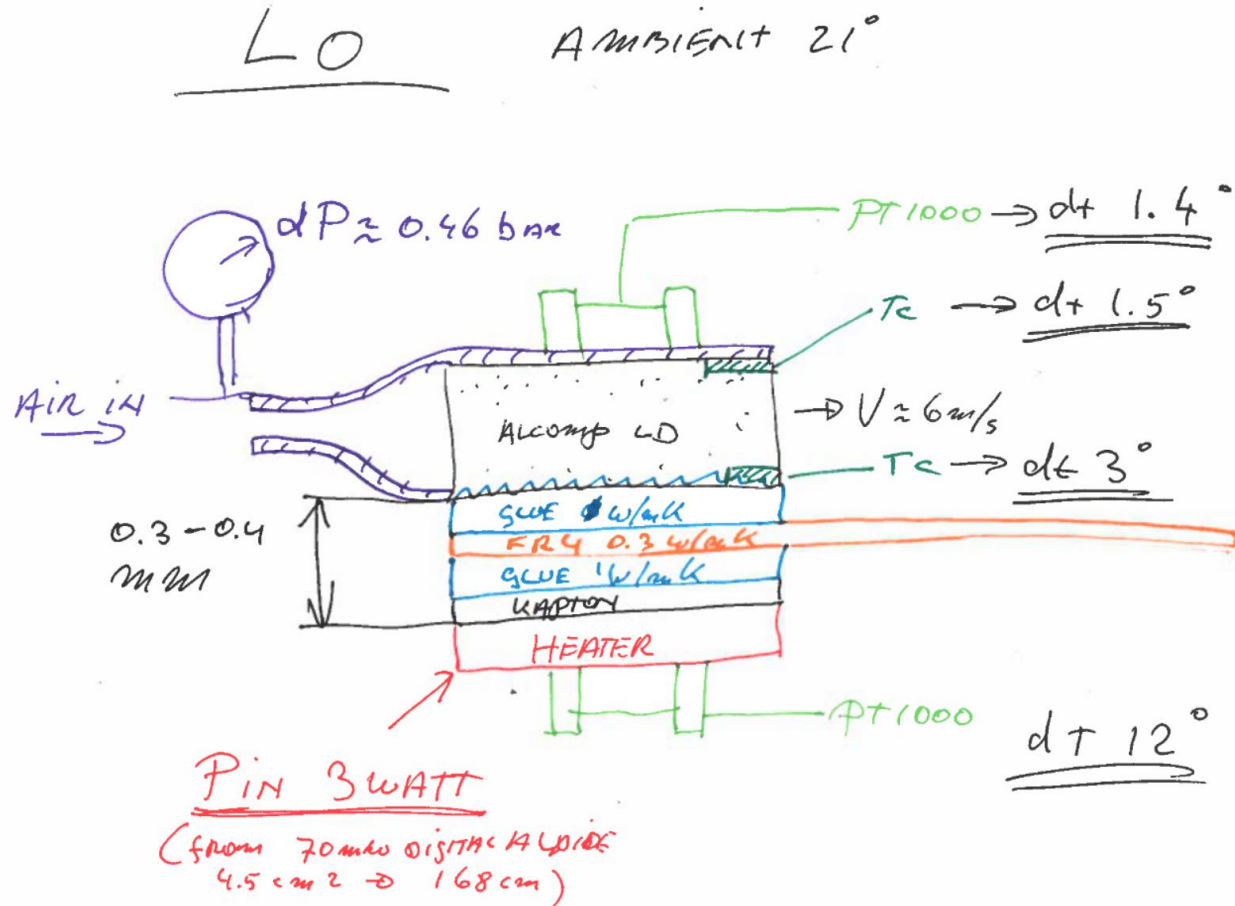 LO
AMBIENT 21°
dP ≈ 0.46 bAR
PT1000 → dt 1.4°
Tc → dt 1.5°
AIR IN
ALCOMP LD
→ V ≈ 6 m/s
Tc → dt 3°
0.3-0.4
mm
GLUE W/mK
FR4 0.3 W/mK
GLUE 1W/mK
KAPTON
HEATER
PT1000
dT 12°
PIN 3WATT
(from DIGITAL
4.5 cm2 → 168cm)